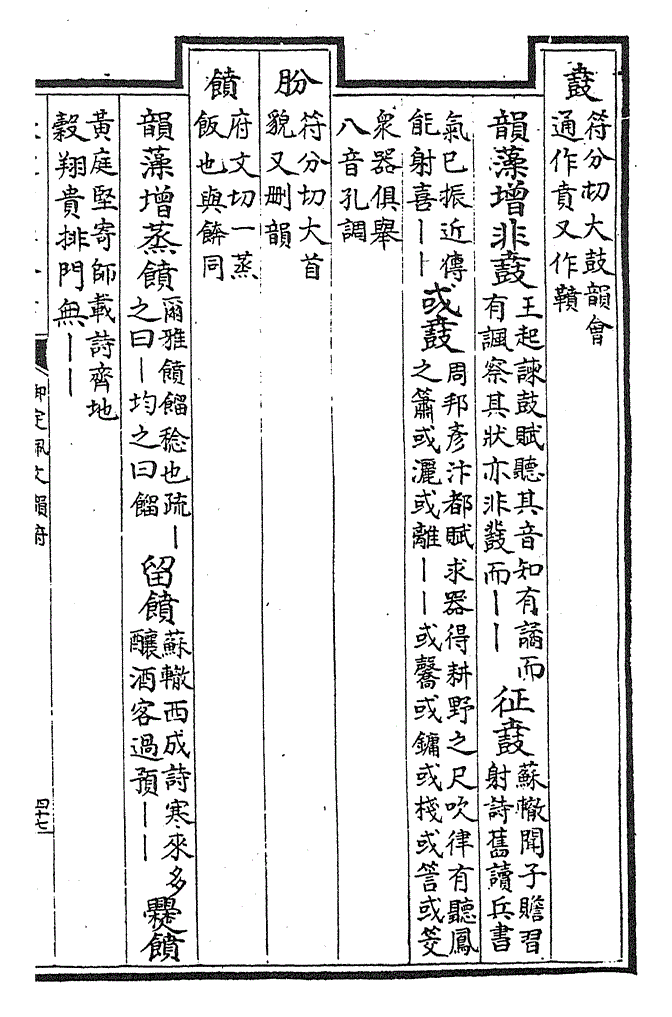 鼖 符分切大鼓韻會
通作賁又作
韻藻增非鼖 王起諫鼓賦聽其音知有譎而
有諷察其狀亦非鼗而｜｜ 征鼖 蘇轍聞子贍習
射詩舊讀兵書
氣已振近傳
能射喜｜｜ 或鼖 周邦彥汴都賦求器得耕野之尺吹律有聽鳳
之簫或灑或離｜｜或毊或鏞或棧或䇾或筊
衆器俱舉
八音孔調
朌 符分切大首
貌又刪韻
饙 府文切一蒸
飯也與餴同
韻藻增蒸饙 爾雅饙餾稔也疏｜
之曰｜均之曰餾 留饙 蘇轍西成詩寒來多
釀酒客過預｜｜ 爨饙
黃庭堅寄師載詩齊地
穀翔貴排門無｜｜
御定佩文韻府
四十七